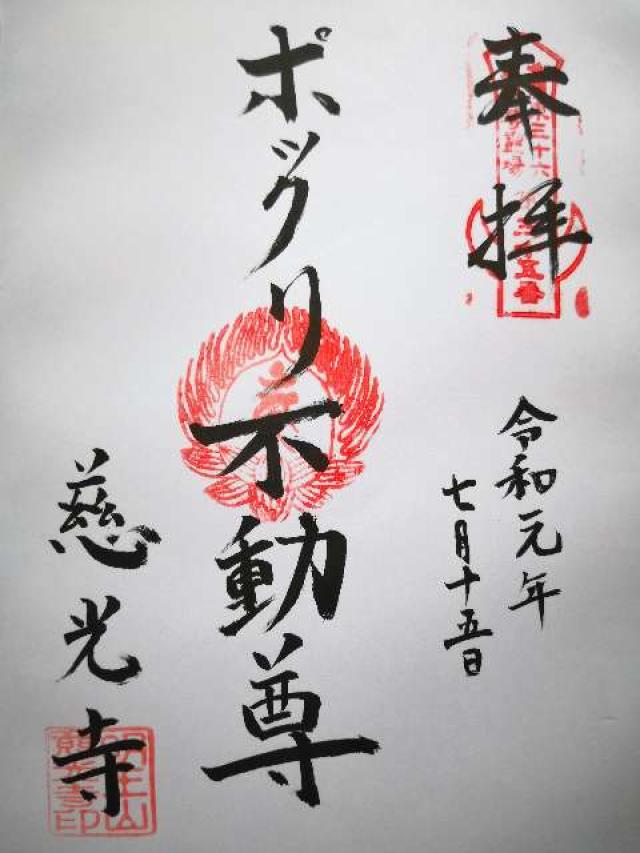 奉拝
令和元年
七月十五日
ポックリ不動尊
慈光寺